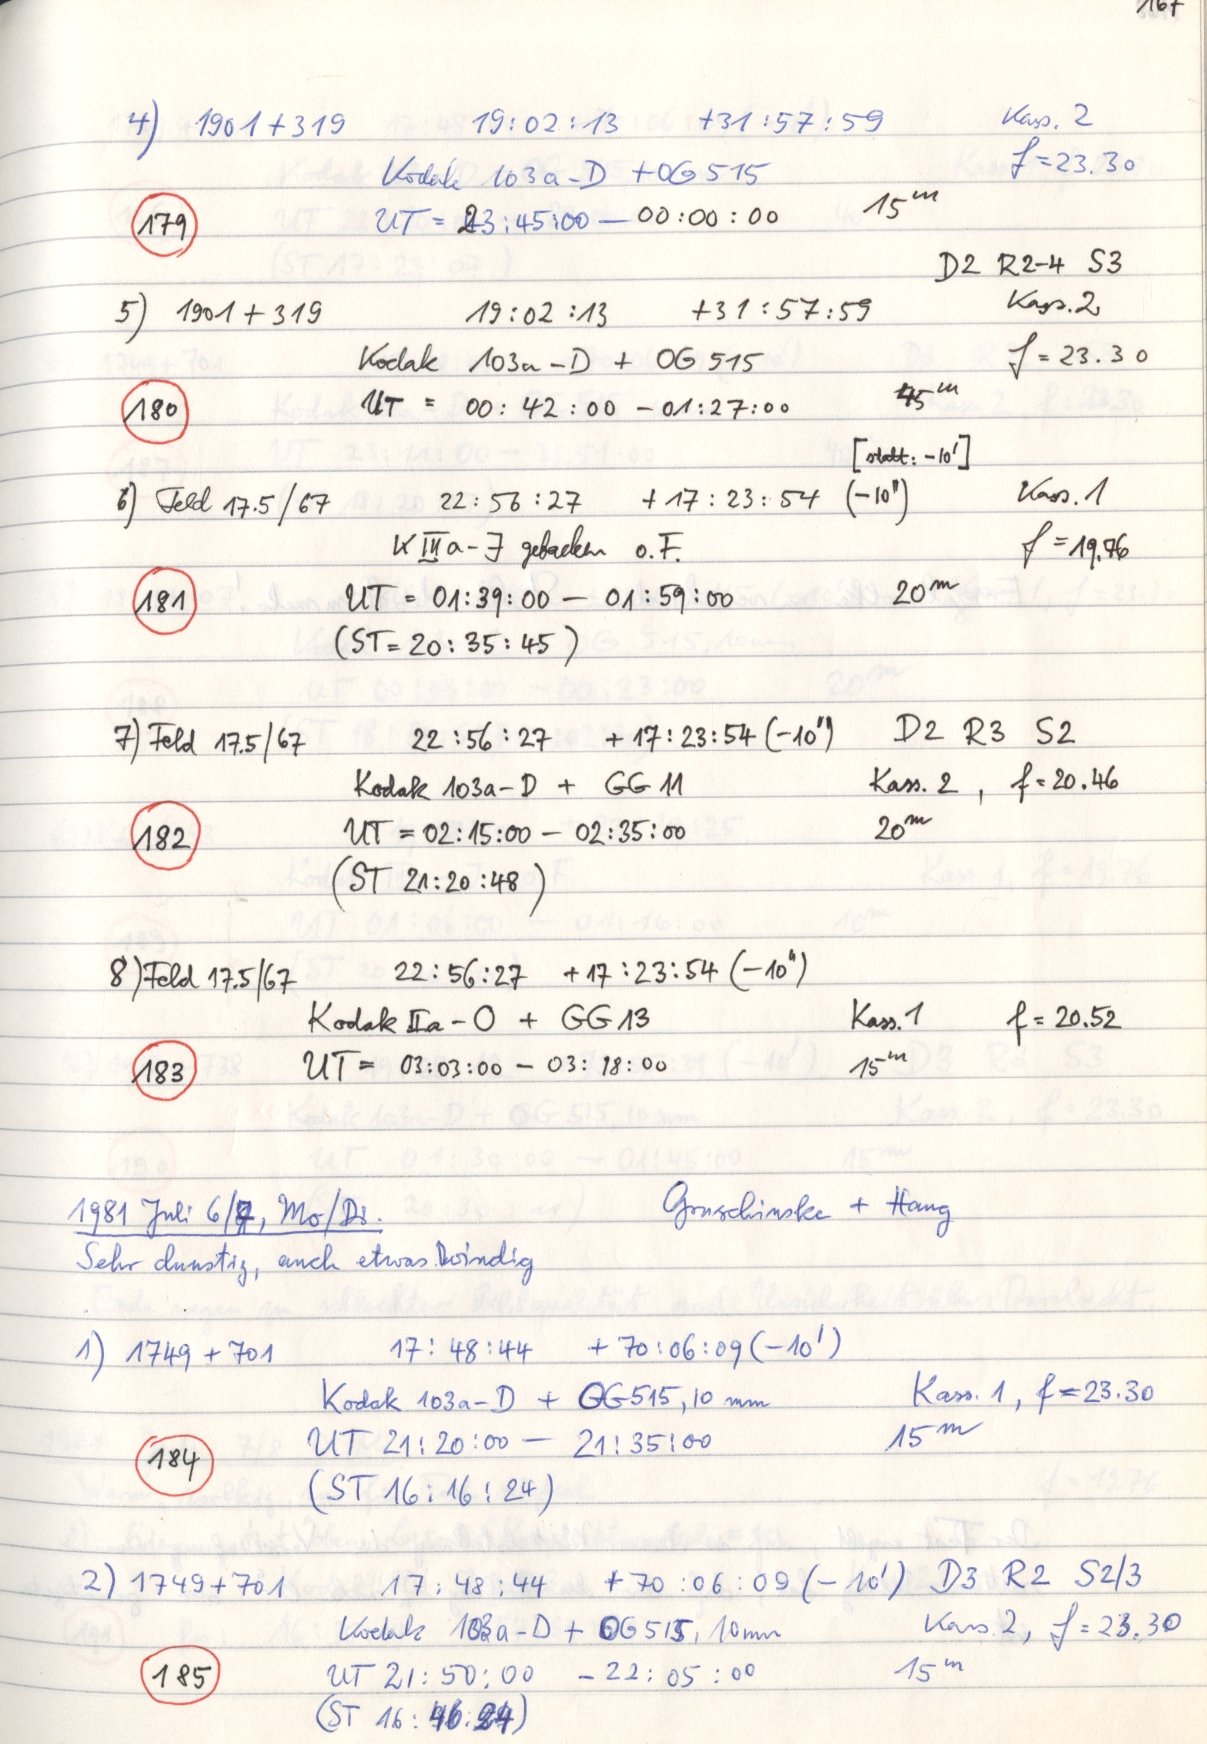 167
4) 1901+319 19:02:13 +31:57:59 Kass. 2
Kodak 103a-D +OG515 f=23.30
179 UT = 23:45:00 — 00:00:00 15m
D2 R2-4 S3
5) 1901+319 19:02:13 +31:57:59 Kass. 2
Kodak 103a-D + OG515 f=23.30
180 UT = 00:42:00 - 01:27:00 45m
[statt: -10']
6) Feld 17.5/67 22:56:27 +17:23:54 (-10") Kass. 1
K IIIa-J gebacken o.F. f=19.76
181 UT = 01:39:00 — 01:59:00 20m
(ST = 20:35:45)
7) Feld 17.5/67 22:56:27 +17:23:54 (-10") D2 R3 S2
Kodak 103a-D + GG 11 Kass. 2, f=20.46
182 UT = 02:15:00 — 02:35:00 20m
(ST 21:20:48)
8) Feld 17.5/67 22:56:27 +17:23:54 (-10")
Kodak IIa-O + GG13 Kass. 1 f=20.52
183 UT = 03:03:00 - 03:18:00 15m
1981 Juli 6/7, Mo/Di. Gruschinske + Haug
Sehr dunstig, auch etwas windig
1) 1749+701 17:48:44 +70:06:09 (-10')
Kodak 103a-D + OG515, 10 mm Kass. 1, f=23.30
184 UT 21:20:00 — 21:35:00 15m
(ST 16:16:24)
2) 1749+701 17:48:44 +70:06:09 (-10') D3 R2 S2/3
Kodak 103a-D + OG515, 10mm Kass. 2, f=23.30
185 UT 21:50:00 - 22:05:00 15m
(ST 16:46:24)